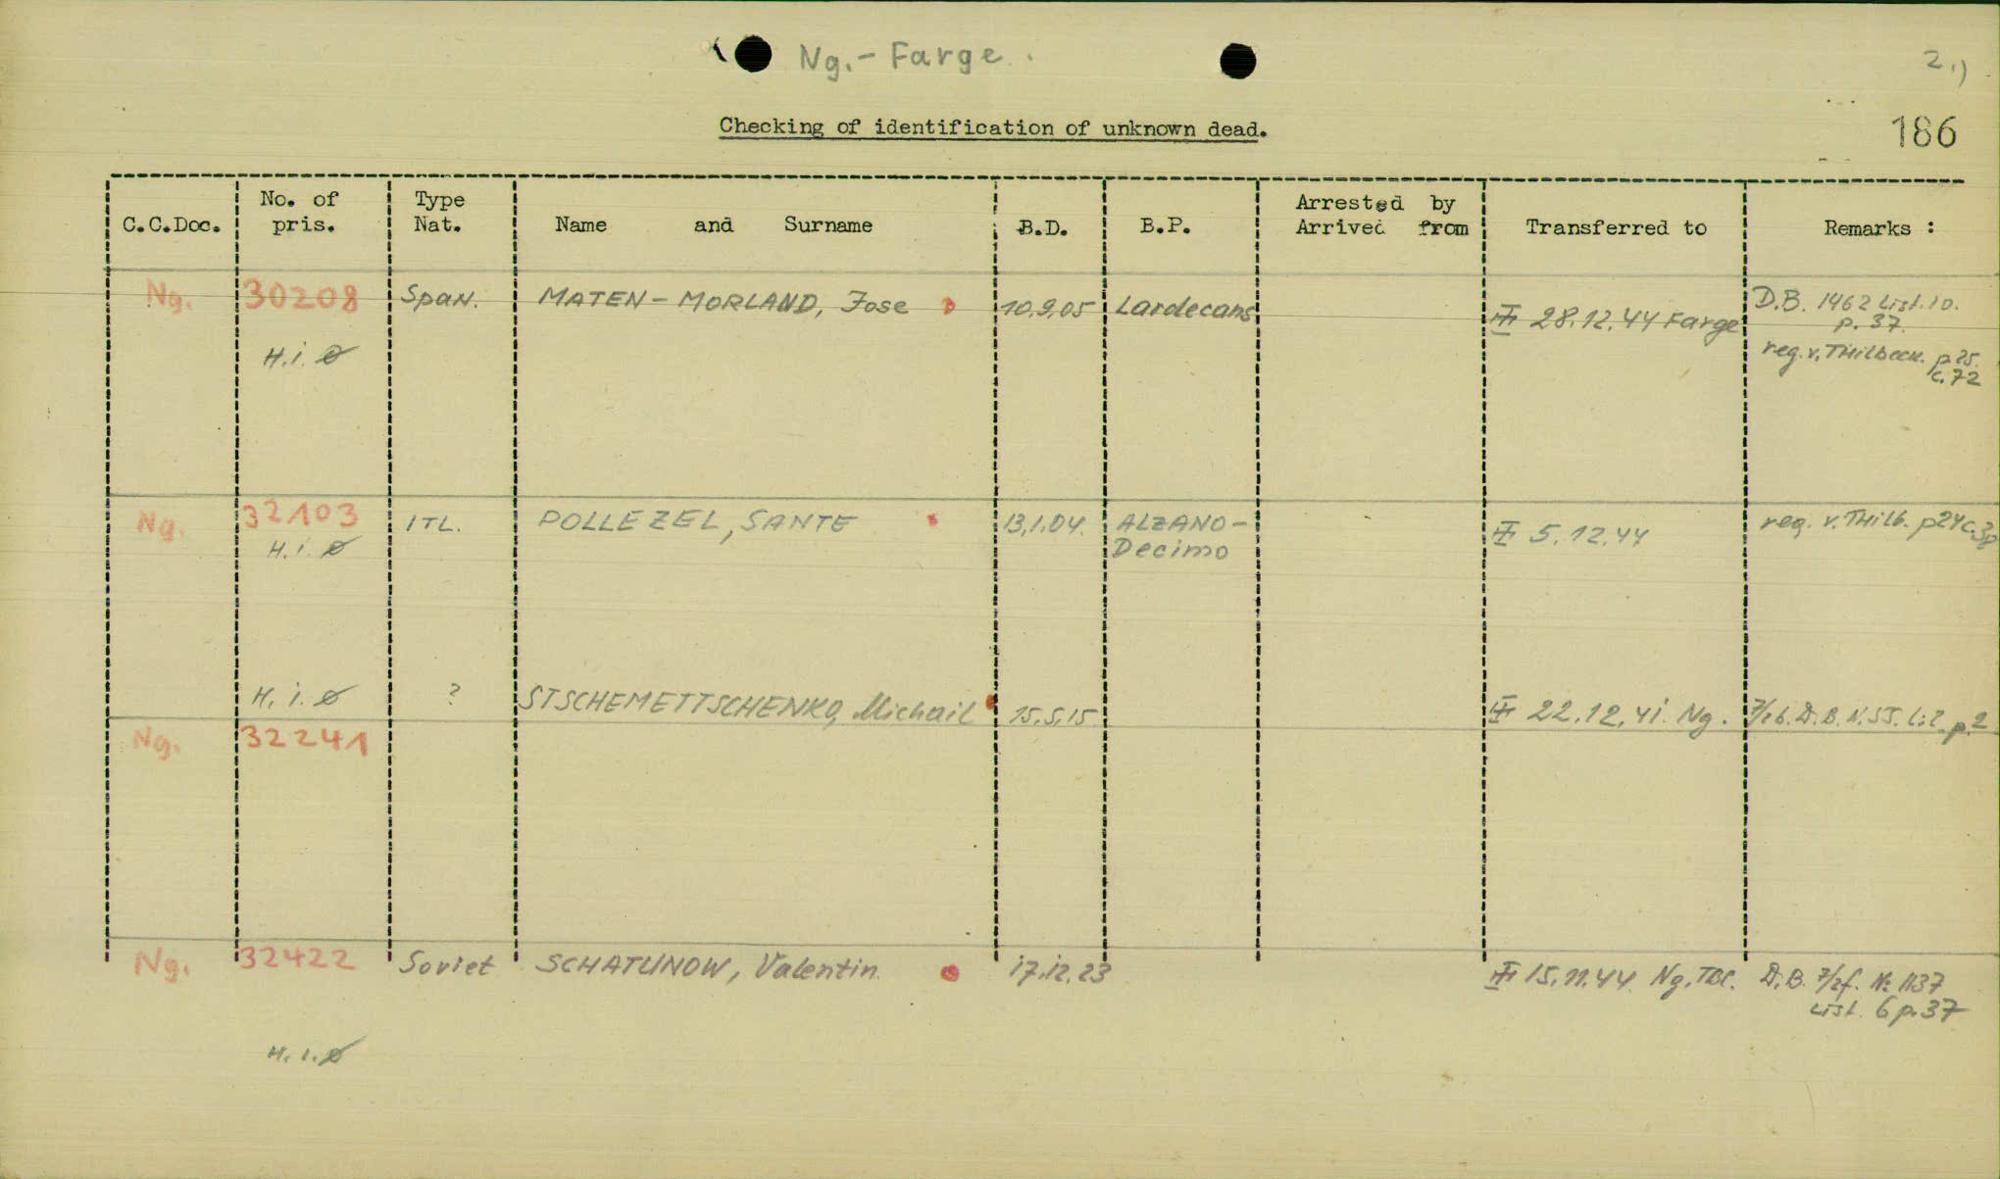 Ng.- Farge.
2.)
Checking of identification of unknown dead.
186
C.C.Doc. No. of pris. Type Nat. Name and Surname B.D. B.P. Arrested by Arrived from Transferred to Remarks :
Ng. 30208 Span. MATEN-MORLAND, Jose 10.9.05 Lardecans 28.12.44 Farge D.B. 1962 List. 10.
p. 37.
H.i.Ø reg. v. THilbeck. p25.
c.72
Ng. 32103 ITL. POLLEZEL, SANTE 13.1.04. ALZANO- 5.12.44 reg. v. THilb. p24c.38
H.i.Ø Decimo
H.i.Ø ? STSCHEMETTSCHENKO, Michail 15.5.15 22.12.41. Ng. D.B. p.2
Ng. 32241
Ng. 32422 Soviet SCHATUNOW, Valentin 17.12.23 15.11.44 Ng. D.B. 7/2f. No 1137
List. 6 p.37
H.i.Ø